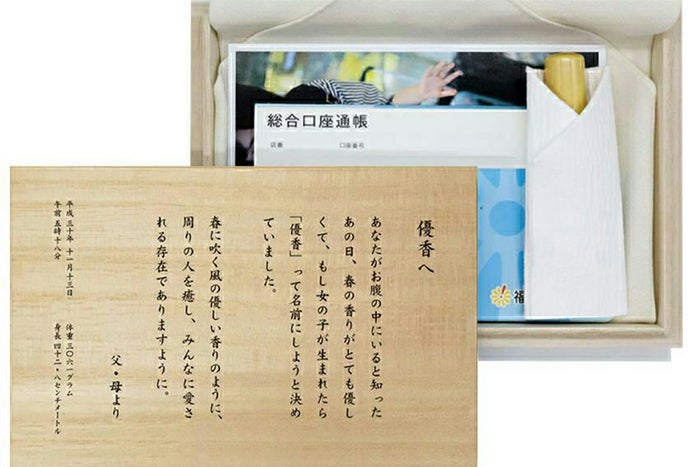 総合口座通帳
店番
口座番号
福
優香へ
あなたがお腹の中にいると知った
あの日、春の香りがとても優し
くて、もし女の子が生まれたら
「優香」って名前にしようと決め
ていました。
春に吹く風の優しい香りのように、
周りの人を癒し、みんなに愛さ
れる存在でありますように。
父・母より
平成三十年 十一月十三日
午前五時十八分
体重 三〇六一グラム
身長 四十二・八センチメートル